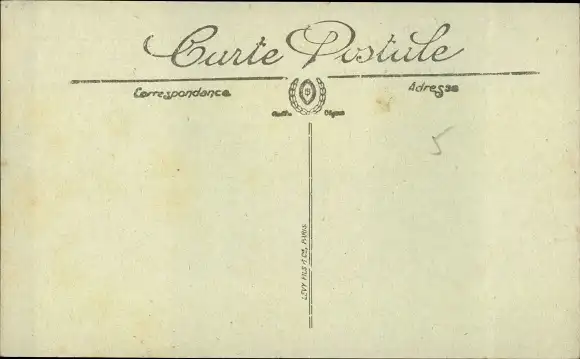 Carte Postale
Correspondance
Adresse
5
LÉVY FILS & Cie, PARIS